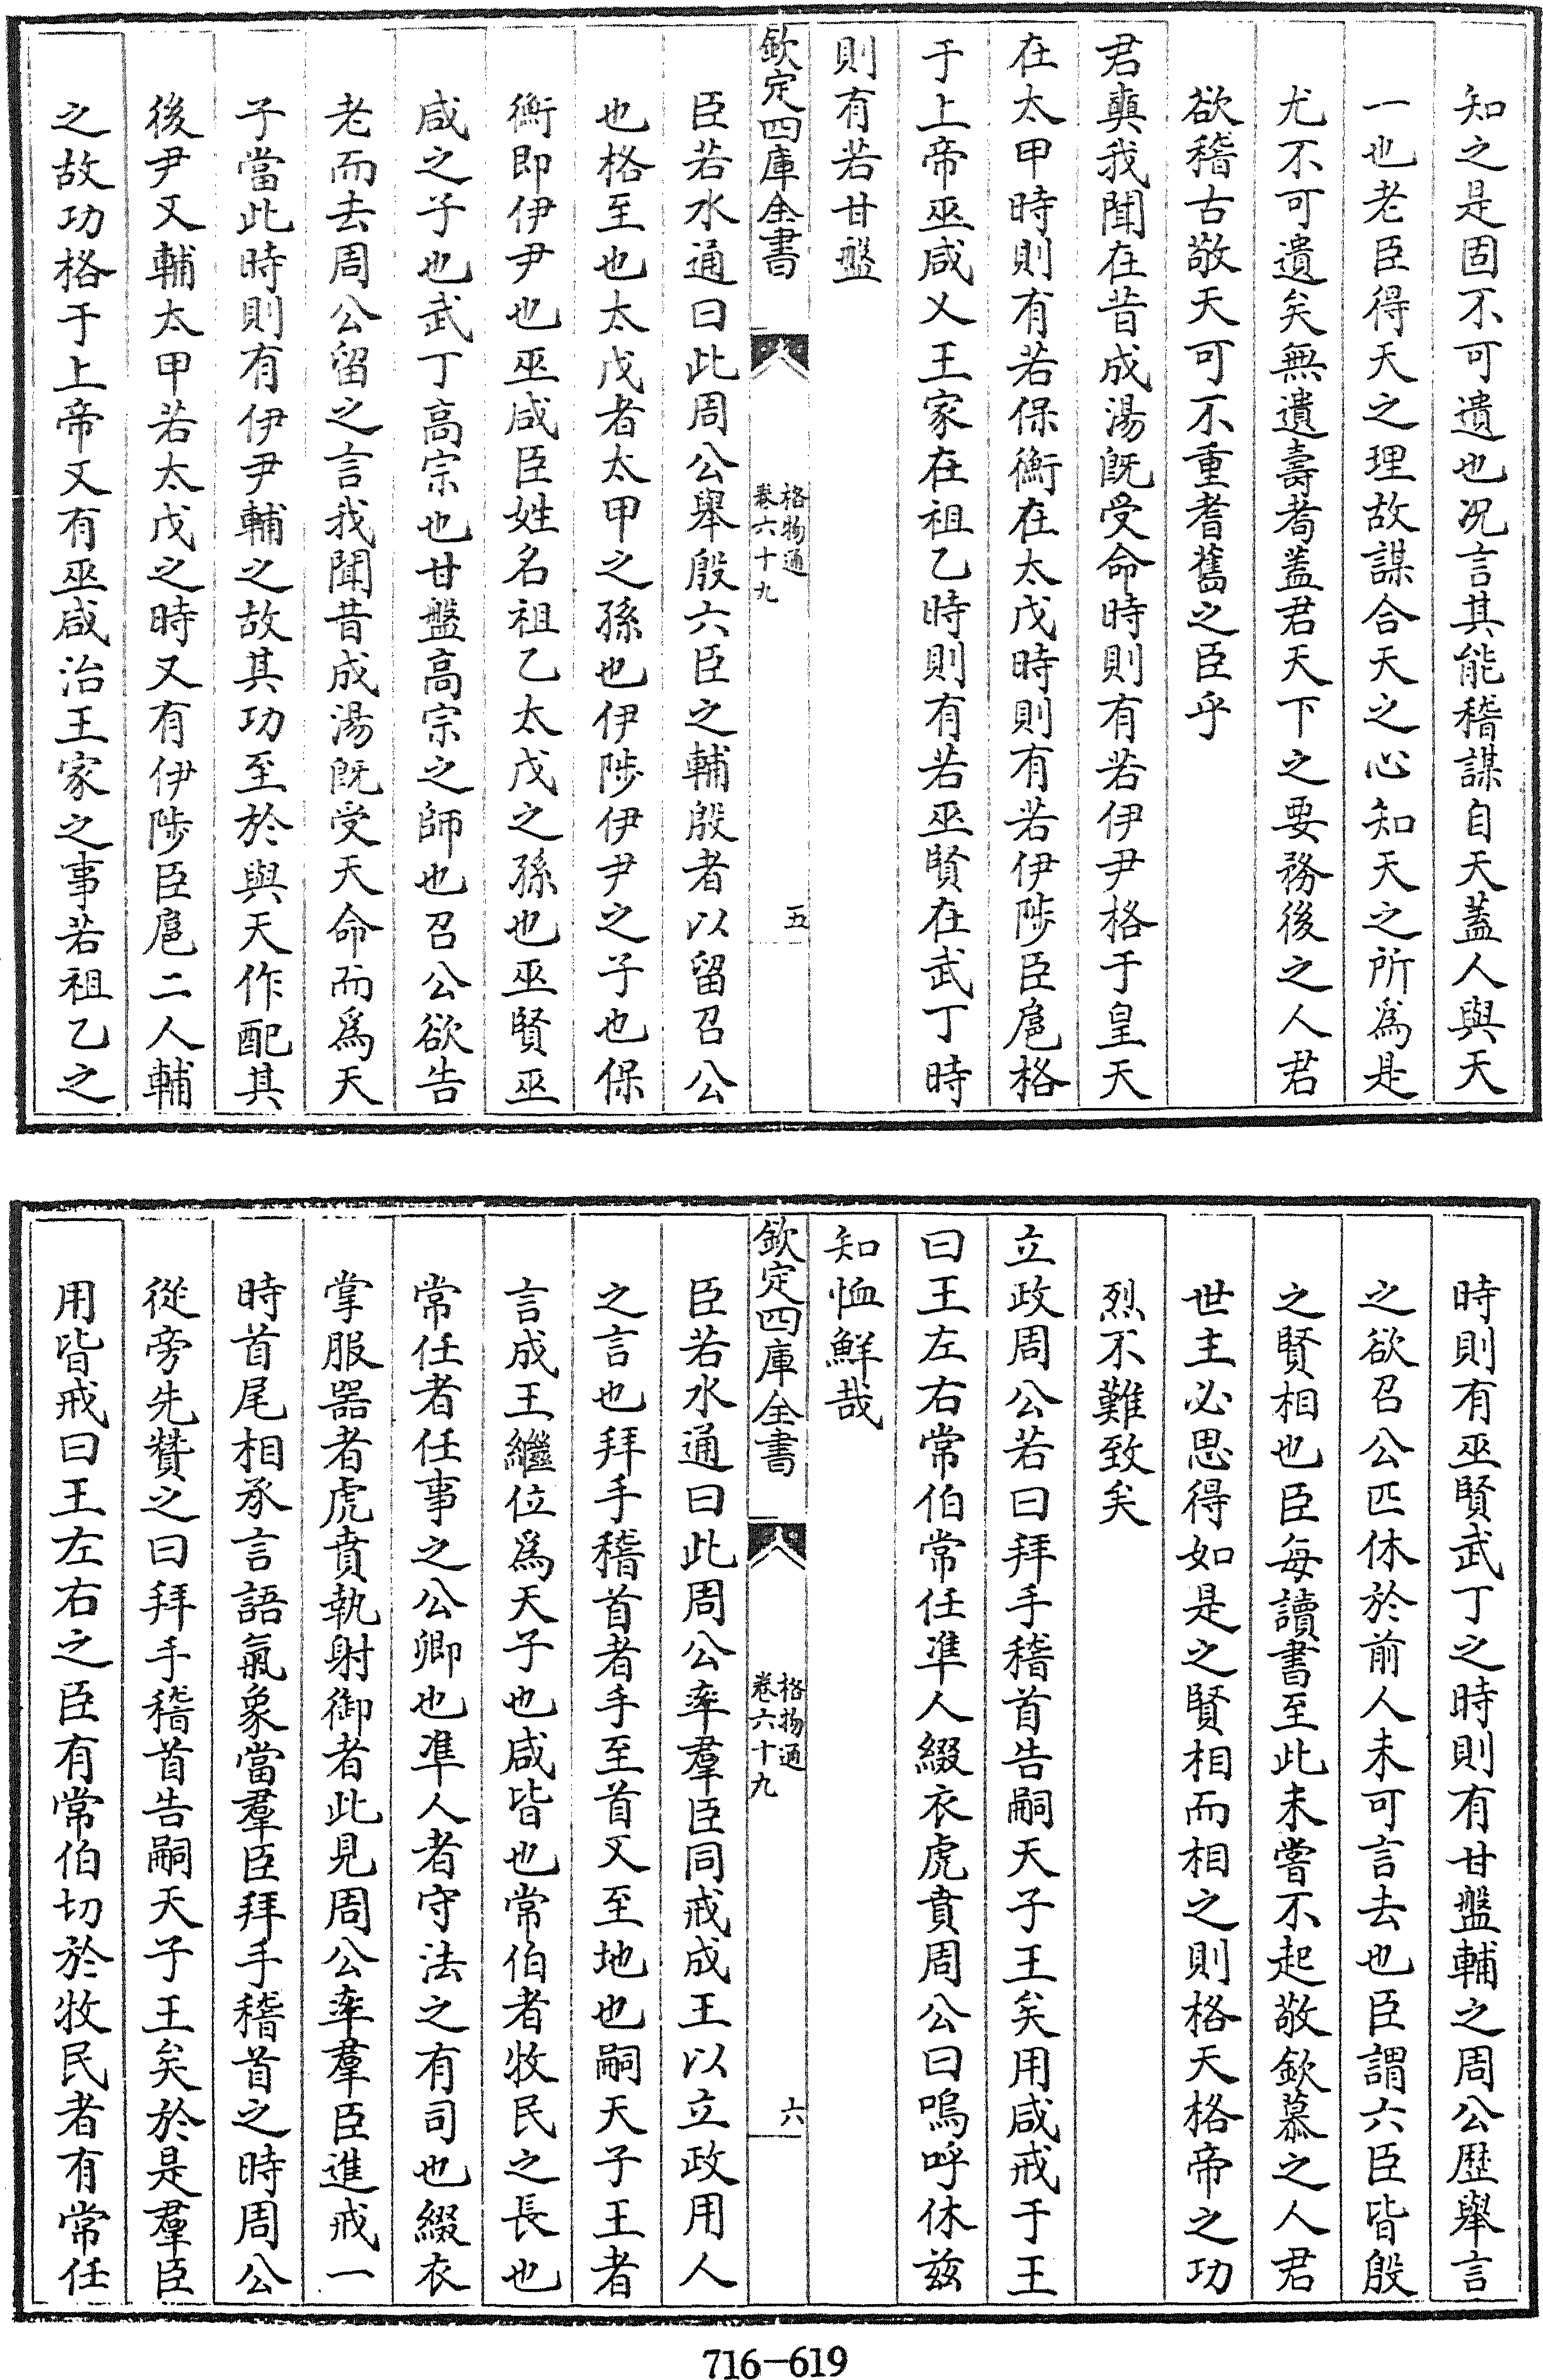 知之是固不可遺也况言其能稽謀自天蓋人與天
一也老臣得天之理故謀合天之心知天之所為是
尤不可遺矣無遺壽耇蓋君天下之要務後之人君
欲稽古敬天可不重耆舊之臣乎
君奭我聞在昔成湯既受命時則有若伊尹格于皇天
在太甲時則有若保衡在太戊時則有若伊陟臣扈格
于上帝巫咸乂王家在祖乙時則有若巫賢在武丁時
則有若甘盤
欽定四庫全書
格物通
卷六十九
五
臣若水通曰此周公舉殷六臣之輔殷者以留召公
也格至也太戊者太甲之孫也伊陟伊尹之子也保
衡即伊尹也巫咸臣姓名祖乙太戊之孫也巫賢巫
咸之子也武丁高宗也甘盤高宗之師也召公欲告
老而去周公留之言我聞昔成湯既受天命而為天
子當此時則有伊尹輔之故其功至於與天作配其
後尹又輔太甲若太戊之時又有伊陟臣扈二人輔
之故功格于上帝又有巫咸治王家之事若祖乙之
時則有巫賢武丁之時則有甘盤輔之周公歷舉言
之欲召公匹休於前人未可言去也臣謂六臣皆殷
之賢相也臣每讀書至此未嘗不起敬欽慕之人君
世主必思得如是之賢相而相之則格天格帝之功
烈不難致矣
立政周公若曰拜手稽首告嗣天子王矣用咸戒于王
曰王左右常伯常任準人綴衣虎賁周公曰嗚呼休茲
知恤鮮哉
欽定四庫全書
格物通
卷六十九
六
臣若水通曰此周公率羣臣同戒成王以立政用人
之言也拜手稽首者手至首又至地也嗣天子王者
言成王繼位為天子也咸皆也常伯者牧民之長也
常任者任事之公卿也準人者守法之有司也綴衣
掌服器者虎賁執射御者此見周公率羣臣進戒一
時首尾相承言語氣象當羣臣拜手稽首之時周公
從旁先贊之曰拜手稽首告嗣天子王矣於是羣臣
用皆戒曰王左右之臣有常伯切於牧民者有常任
716-619